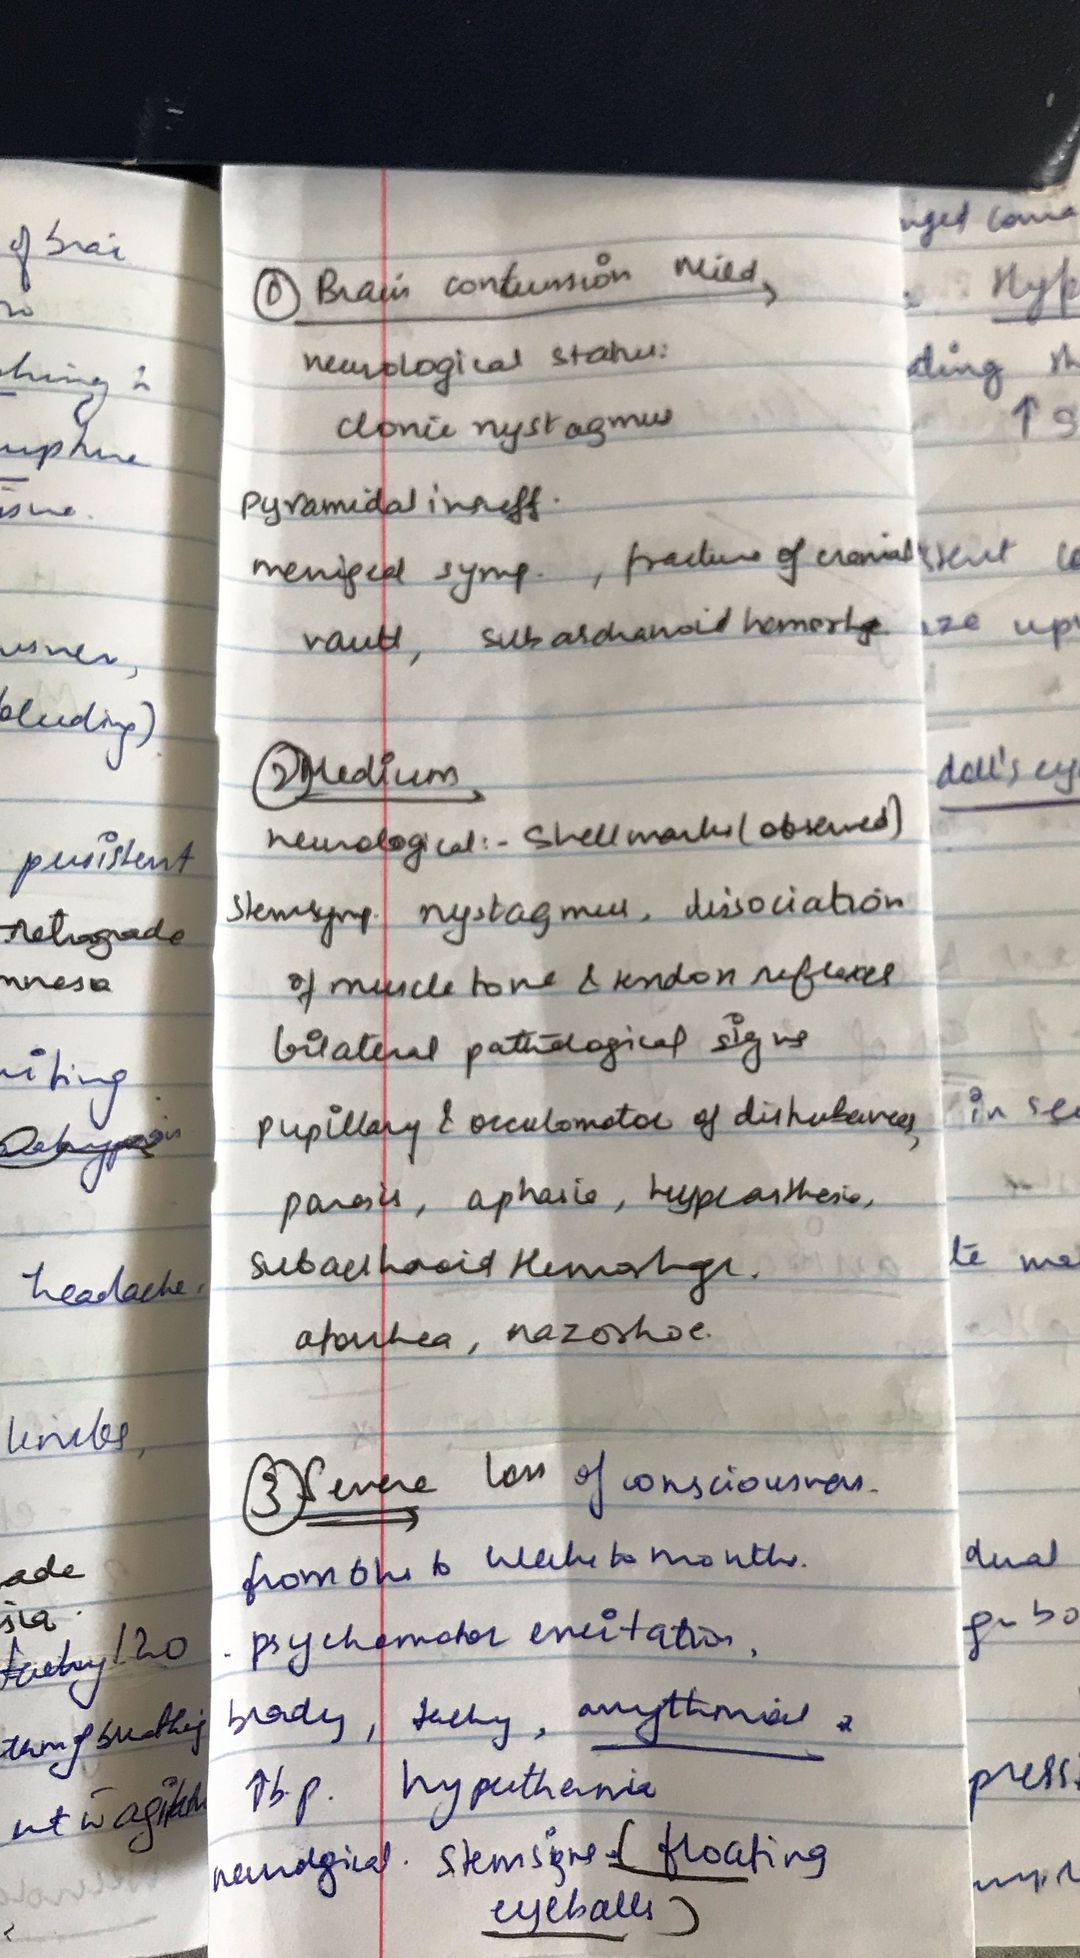 ① Brain contunsion Mild,
neurological status:
clonic nystagmus
pyramidal insuff.
meniged symp. , fracture of cranial
vault, subarchanoid hemorhge
② Medium
neurological:- Shell marks (observed)
Stemsymp. nystagmus, dissociation
of muscle tone & tendon reflexes
bilateral pathological signs
pupillary & occulomotor of disturbances,
paresis, aphasia, hypeasthesia,
subarchnoid Hemorhge.
otorrhea, nazorhoe.
③ Severe loss of consciousness.
from to weeks to months.
. psychomotor excitation,
brady, tachy, arrythmias
↑b.p. hyperthermia
neurolgical. Stemsigns (floating
eyeballs)
of brai
bleeding)
persistent
retrograde
mnesa
headache.
ade
tachy 120
nged coma
Hyp
ding
↑ S
doll's ey
in se
te
dual
press